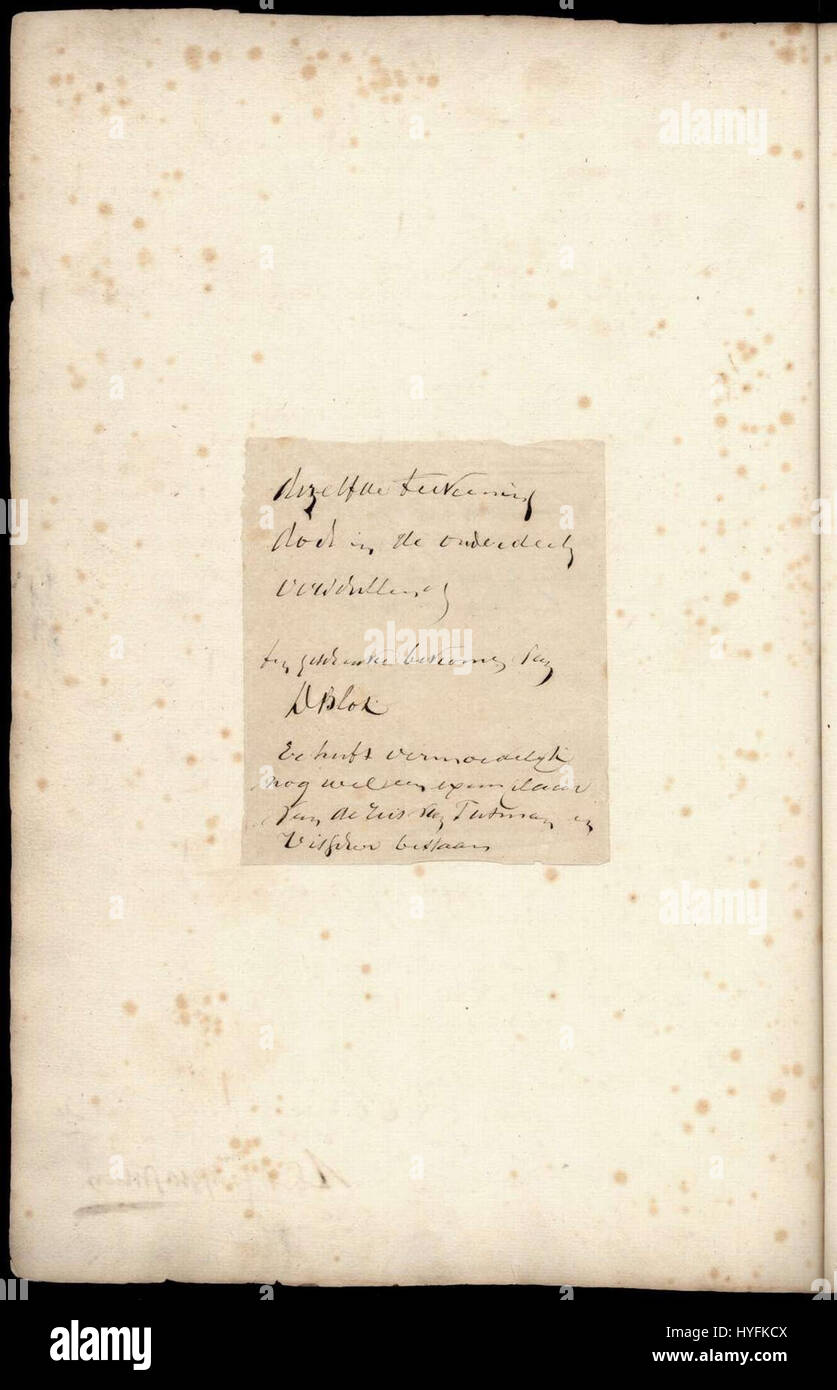 dezelfde teekening
doch in de onderdeelen
verschillend
ten geschenke bekomen van
D Blok
Er heeft vermoedelijk
nog wel een exemplaar
van de reis van en
Visscher bestaan
alamy
Image ID: HYFKCX
www.alamy.com